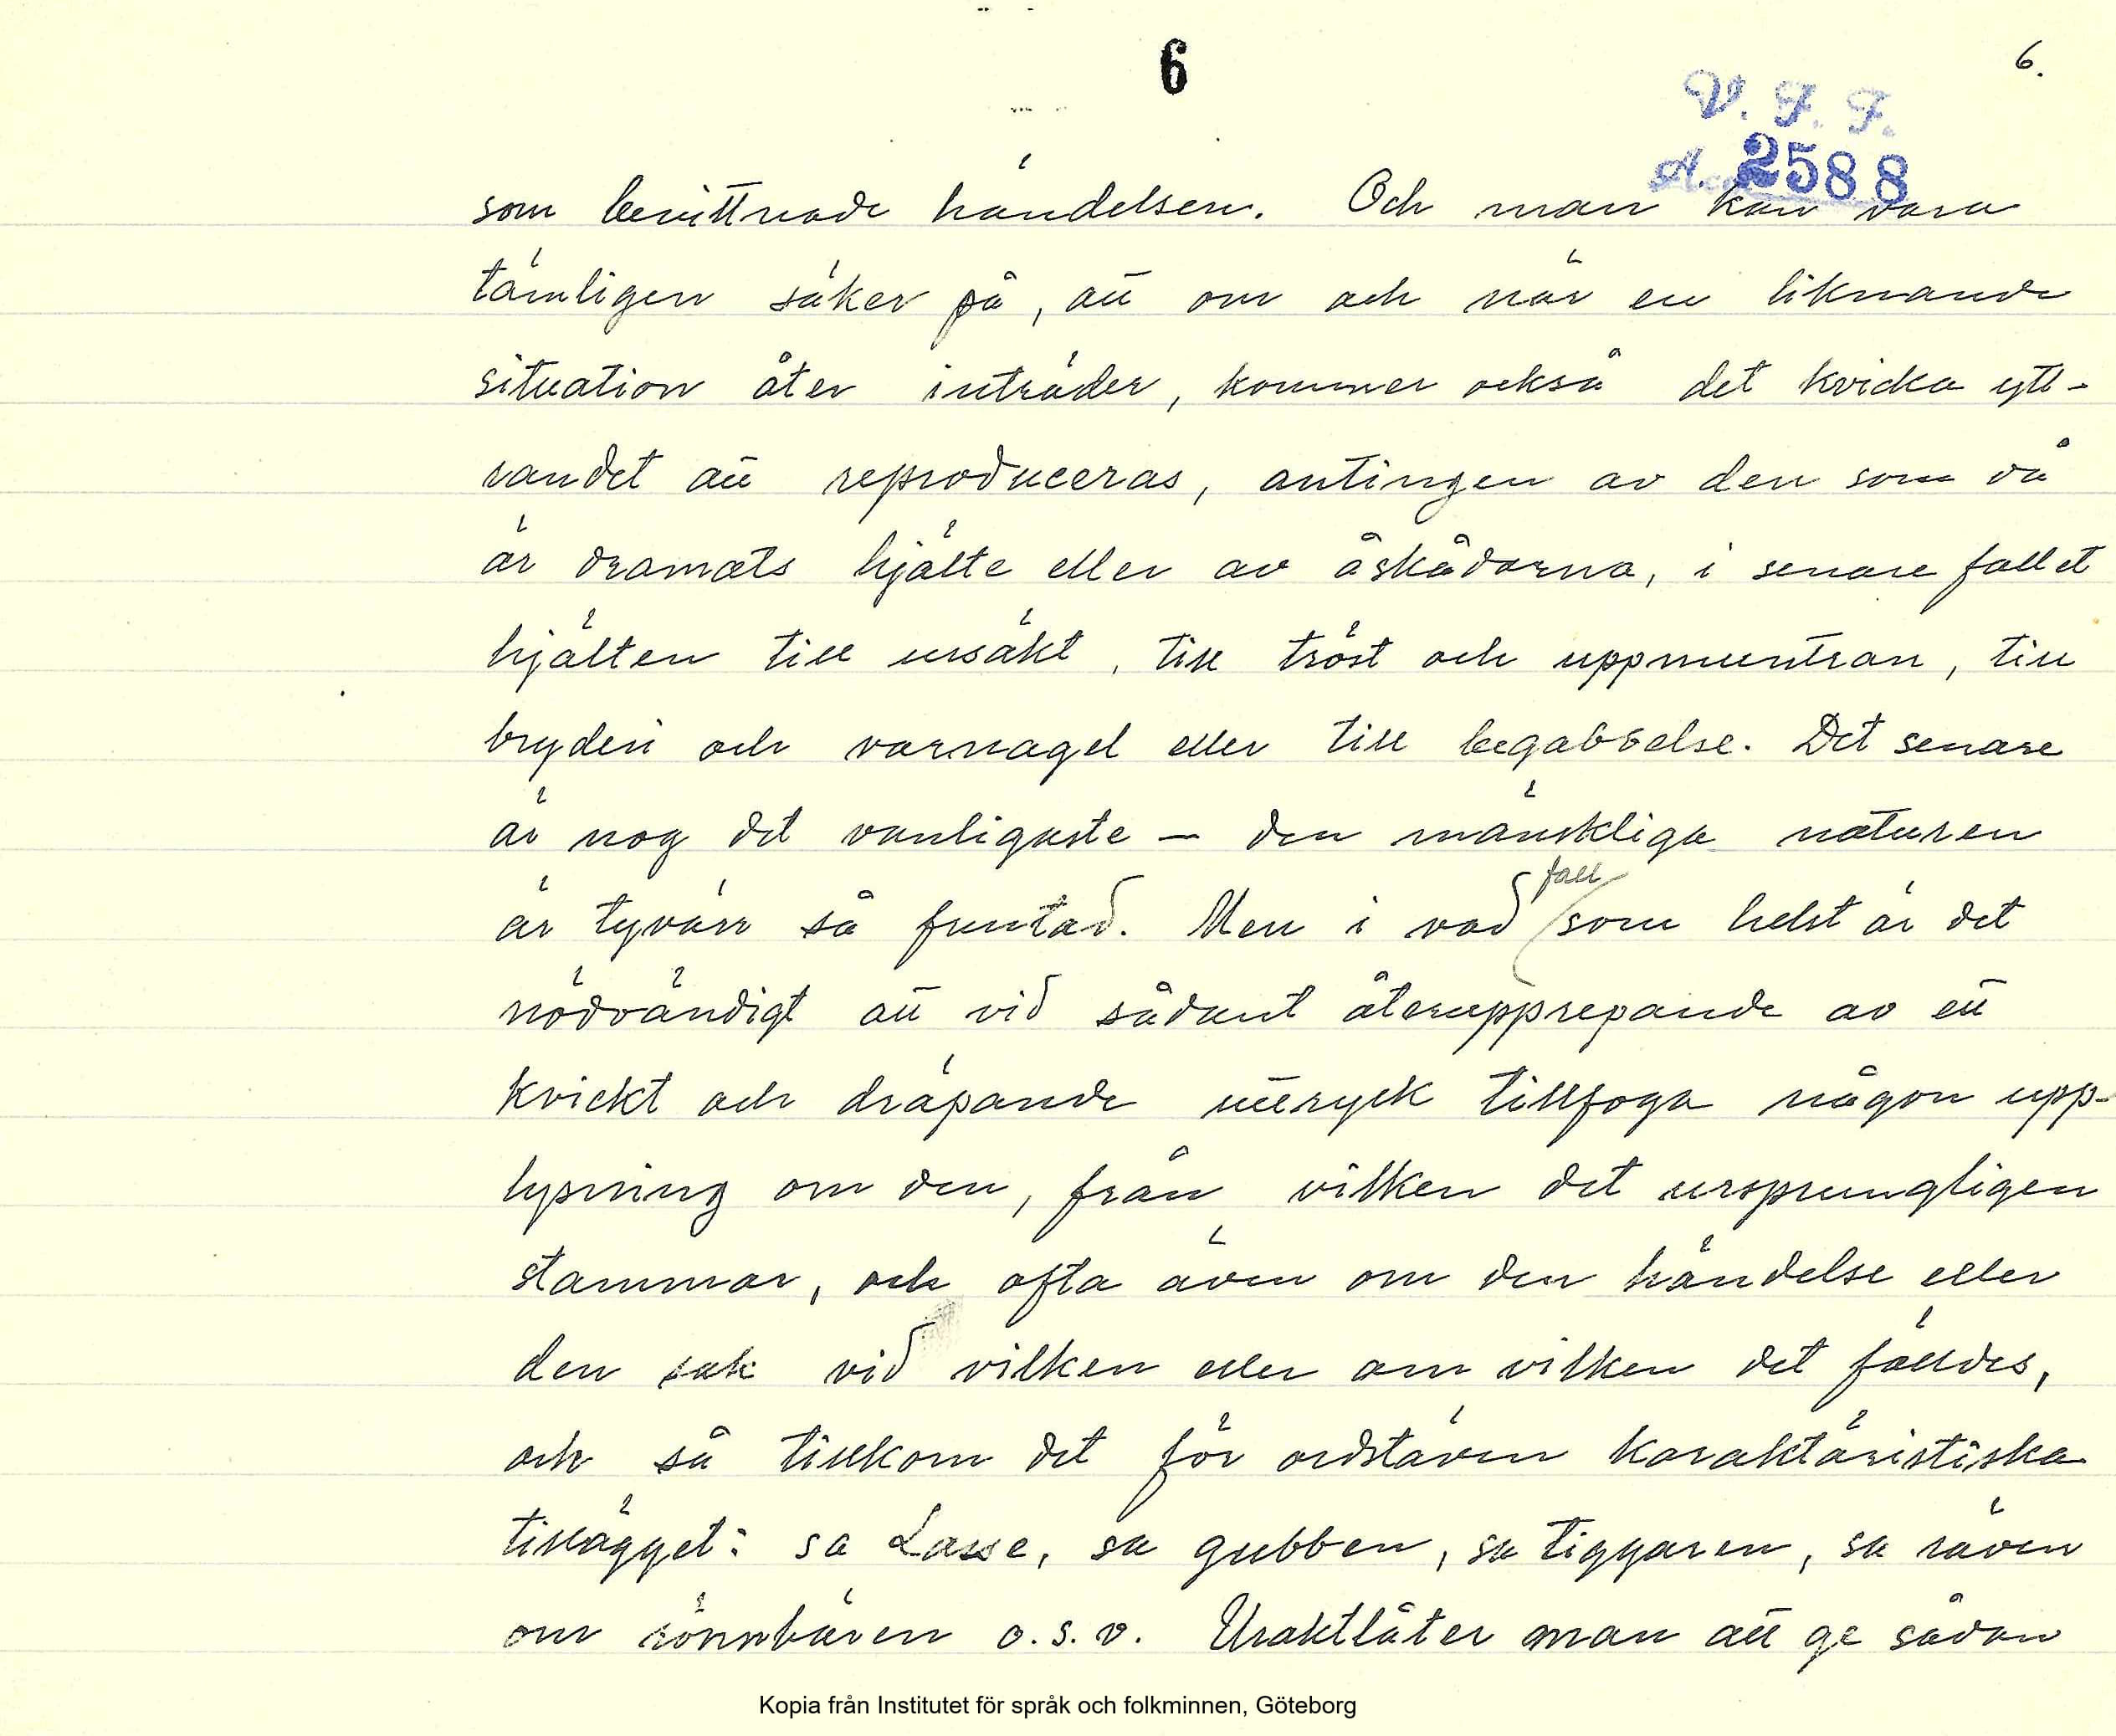 6
6.
V. F. F.
Acc. 2588
som bevittnade händelsen. Och man kan vara
tämligen säker på, att om och när en liknande
situation åter inträder, kommer också det kvicka ytt-
randet att reproduceras, antingen av den som då
är dramats hjälte eller av åskådarna, i senare fallet
hjälten till ursäkt, till tröst och uppmuntran, till
bryderi och varnagel eller till begabbelse. Det senare
är nog det vanligaste – den mänskliga naturen
är tyvärr så funtad. Men i vad fall som helst är det
nödvändigt att vid sådant återupprepande av ett
kvickt och dräpande uttryck tillfoga någon upp-
lysning om den, från vilken det ursprungligen
stammar, och ofta även om den händelse eller
den sak vid vilken eller om vilken det fälldes,
och så tillkom det för ordstäven karaktäristiska
tillägget: sa Lasse, sa gubben, sa tiggaren, sa räven
om rönnbären o.s.v. Uraktlåter man att ge sådan
Kopia från Institutet för språk och folkminnen, Göteborg